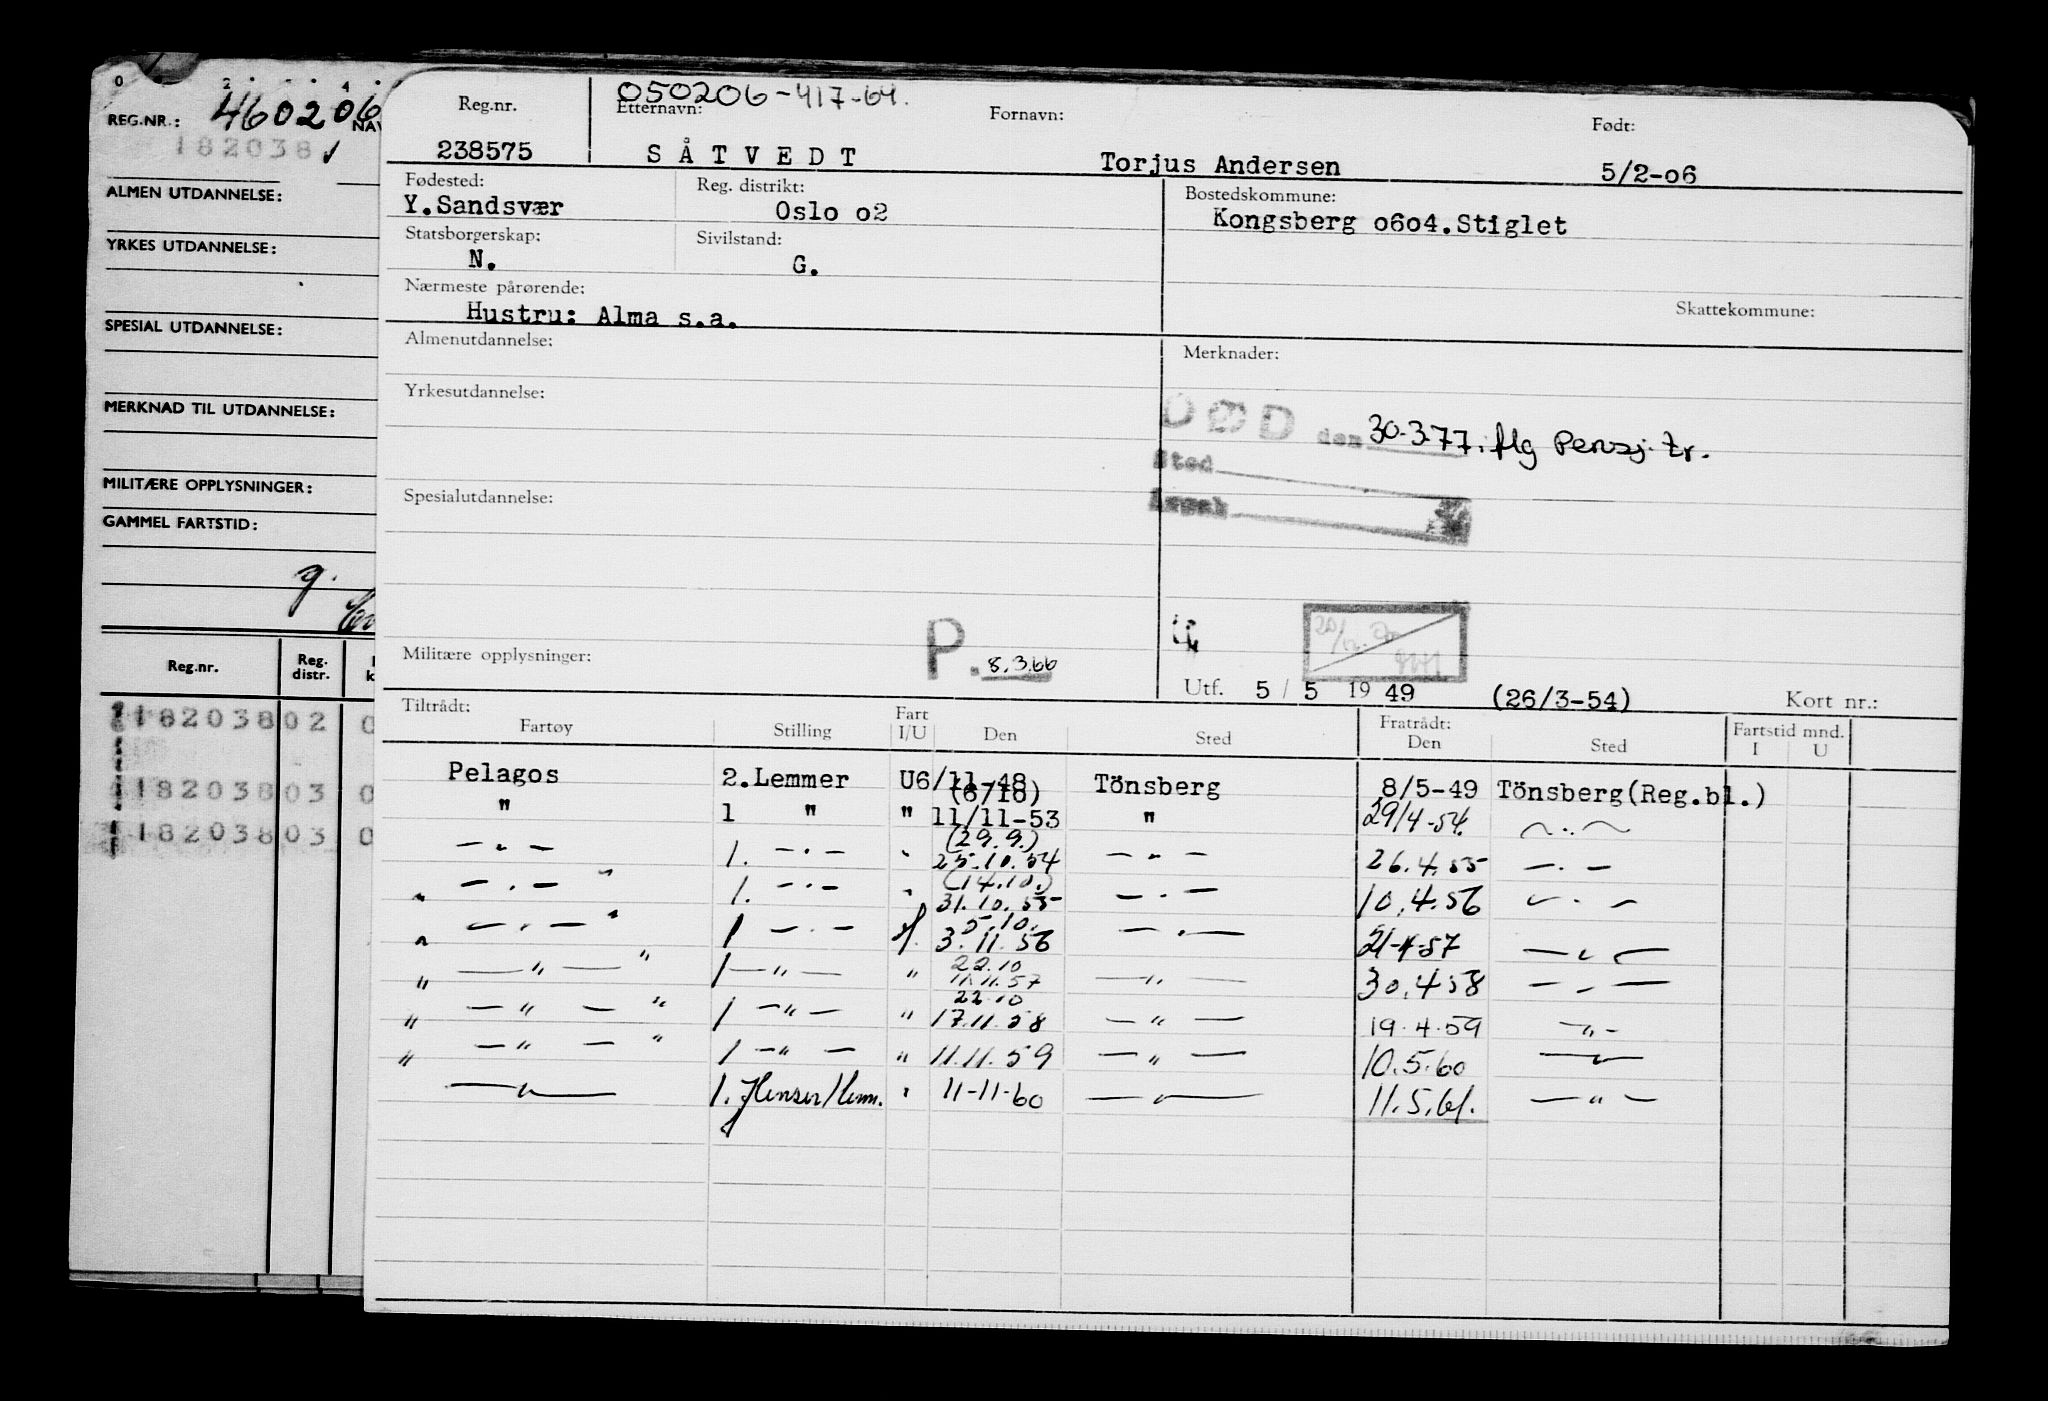 REG.NR.: 460206 NAV
182038 ✓
ALMEN UTDANNELSE:
YRKES UTDANNELSE:
SPESIAL UTDANNELSE:
MERKNAD TIL UTDANNELSE:
MILITÆRE OPPLYSNINGER:
GAMMEL FARTSTID:
g.
Reg.nr. Reg. distr. k
182038 02 0
182038 03 0
182038 03 0
050206-417-64.
Reg.nr. Etternavn: Fornavn: Født:
238575 SÅTVEDT Torjus Andersen 5/2-06
Fødested: Reg. distrikt: Bostedskommune:
Y.Sandsvær Oslo o2 Kongsberg o6o4.Stiglet
Statsborgerskap: Sivilstand:
N. G.
Nærmeste pårørende: Skattekommune:
Hustru: Alma s.a.
Almenutdannelse: Merknader:
Yrkesutdannelse:
DØD den 30.3.77. flg Pensj. tr.
Sted
Spesialutdannelse:
Militære opplysninger: P. 8.3.66
Utf. 5 / 5 1949 (26/3-54) Kort nr.:
Tiltrådt: Fratrådt: Fartstid mnd.
Fartøy Stilling Fart I/U Den Sted Den Sted I U
Pelagos 2.Lemmer U 6/11-48 Tönsberg 8/5-49 Tönsberg(Reg.bl.)
(6/10)
" 1 " " 11/11-53 " 29/4-54. ~ .. ~
(29.9.)
— " — 1. — . — " 25.10.54 — " — 26.4.55 — . —
(14.10.)
" — . — " 1. — . — " 31.10.55 — . — 10.4.56 — . —
5.10.
" — . — " 1 — . — 3.11.56 — . — 21-4-57 — " —
22.10
" — " — " 1 — " — " 11.11.57 — " — 30.4.58 — . —
22.10
" — " — " 1 — " — " 17.11.58 — " — 19.4.59 — " —
" — " — " 1 — " — " 11.11.59 — " — 10.5.60 — " —
— " — 1. " 11-11-60 — " — 11.5.61. — " —